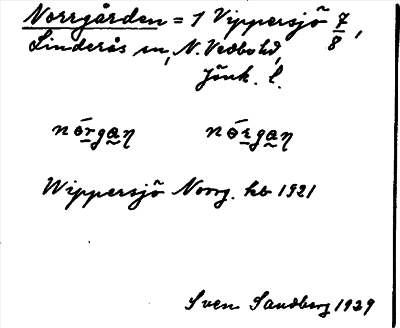 Norrgården = 1 Vippersjö 7/8,
Linderås sn, N. Vedbo hd,
Jönk. l.
nórgaŋ nórgaŋ
Wippersjö Norrg. kb 1921
Sven Sandberg 1929